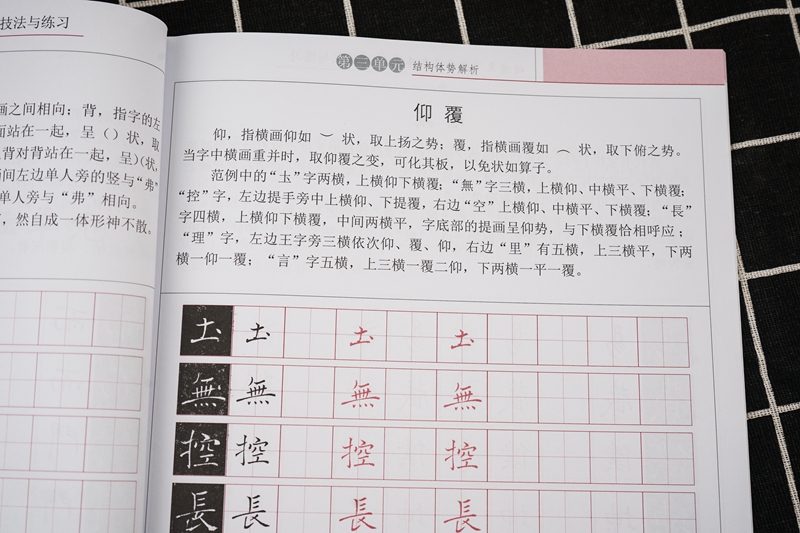 技法与练习
画之间相向；背，指字的左
面站在一起，呈（）状，取
背对背站在一起，呈）（状，
间左边单人旁的竖与“弗”
单人旁与“弗”相向。
，然自成一体形神不散。
第三单元 结构体势解析
仰覆
仰，指横画仰如 ︶ 状，取上扬之势；覆，指横画覆如 ︵ 状，取下俯之势。
当字中横画重并时，取仰覆之变，可化其板，以免状如算子。
范例中的“圡”字两横，上横仰下横覆；“無”字三横，上横仰、中横平、下横覆；
“控”字，左边提手旁中上横仰、下提覆，右边“空”上横仰、中横平、下横覆；“長”
字四横，上横仰下横覆，中间两横平，字底部的提画呈仰势，与下横覆恰相呼应；
“理”字，左边王字旁三横依次仰、覆、仰，右边“里”有五横，上三横平，下两
横一仰一覆；“言”字五横，上三横一覆二仰，下两横一平一覆。
圡 圡 圡 圡
無 無 無 無
控 控 控 控
長 長 長 長